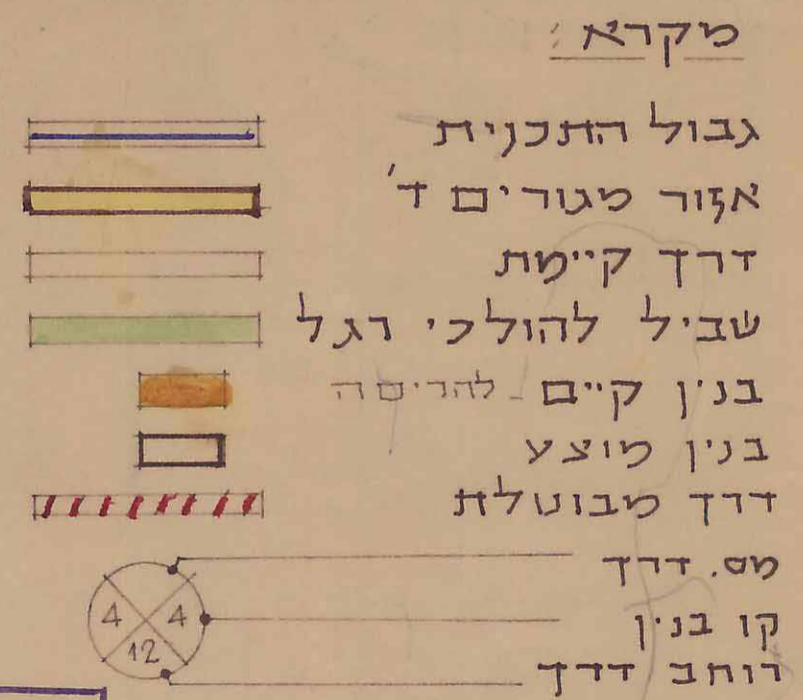 מקרא:
גבול התכנית
אזור מגורים ד'
דרך קיימת
שביל להולכי רגל
בנין קיים - להריסה
בנין מוצע
דרך מבוטלת
מס. דרך
קו בנין
רוחב דרך
4 4
12